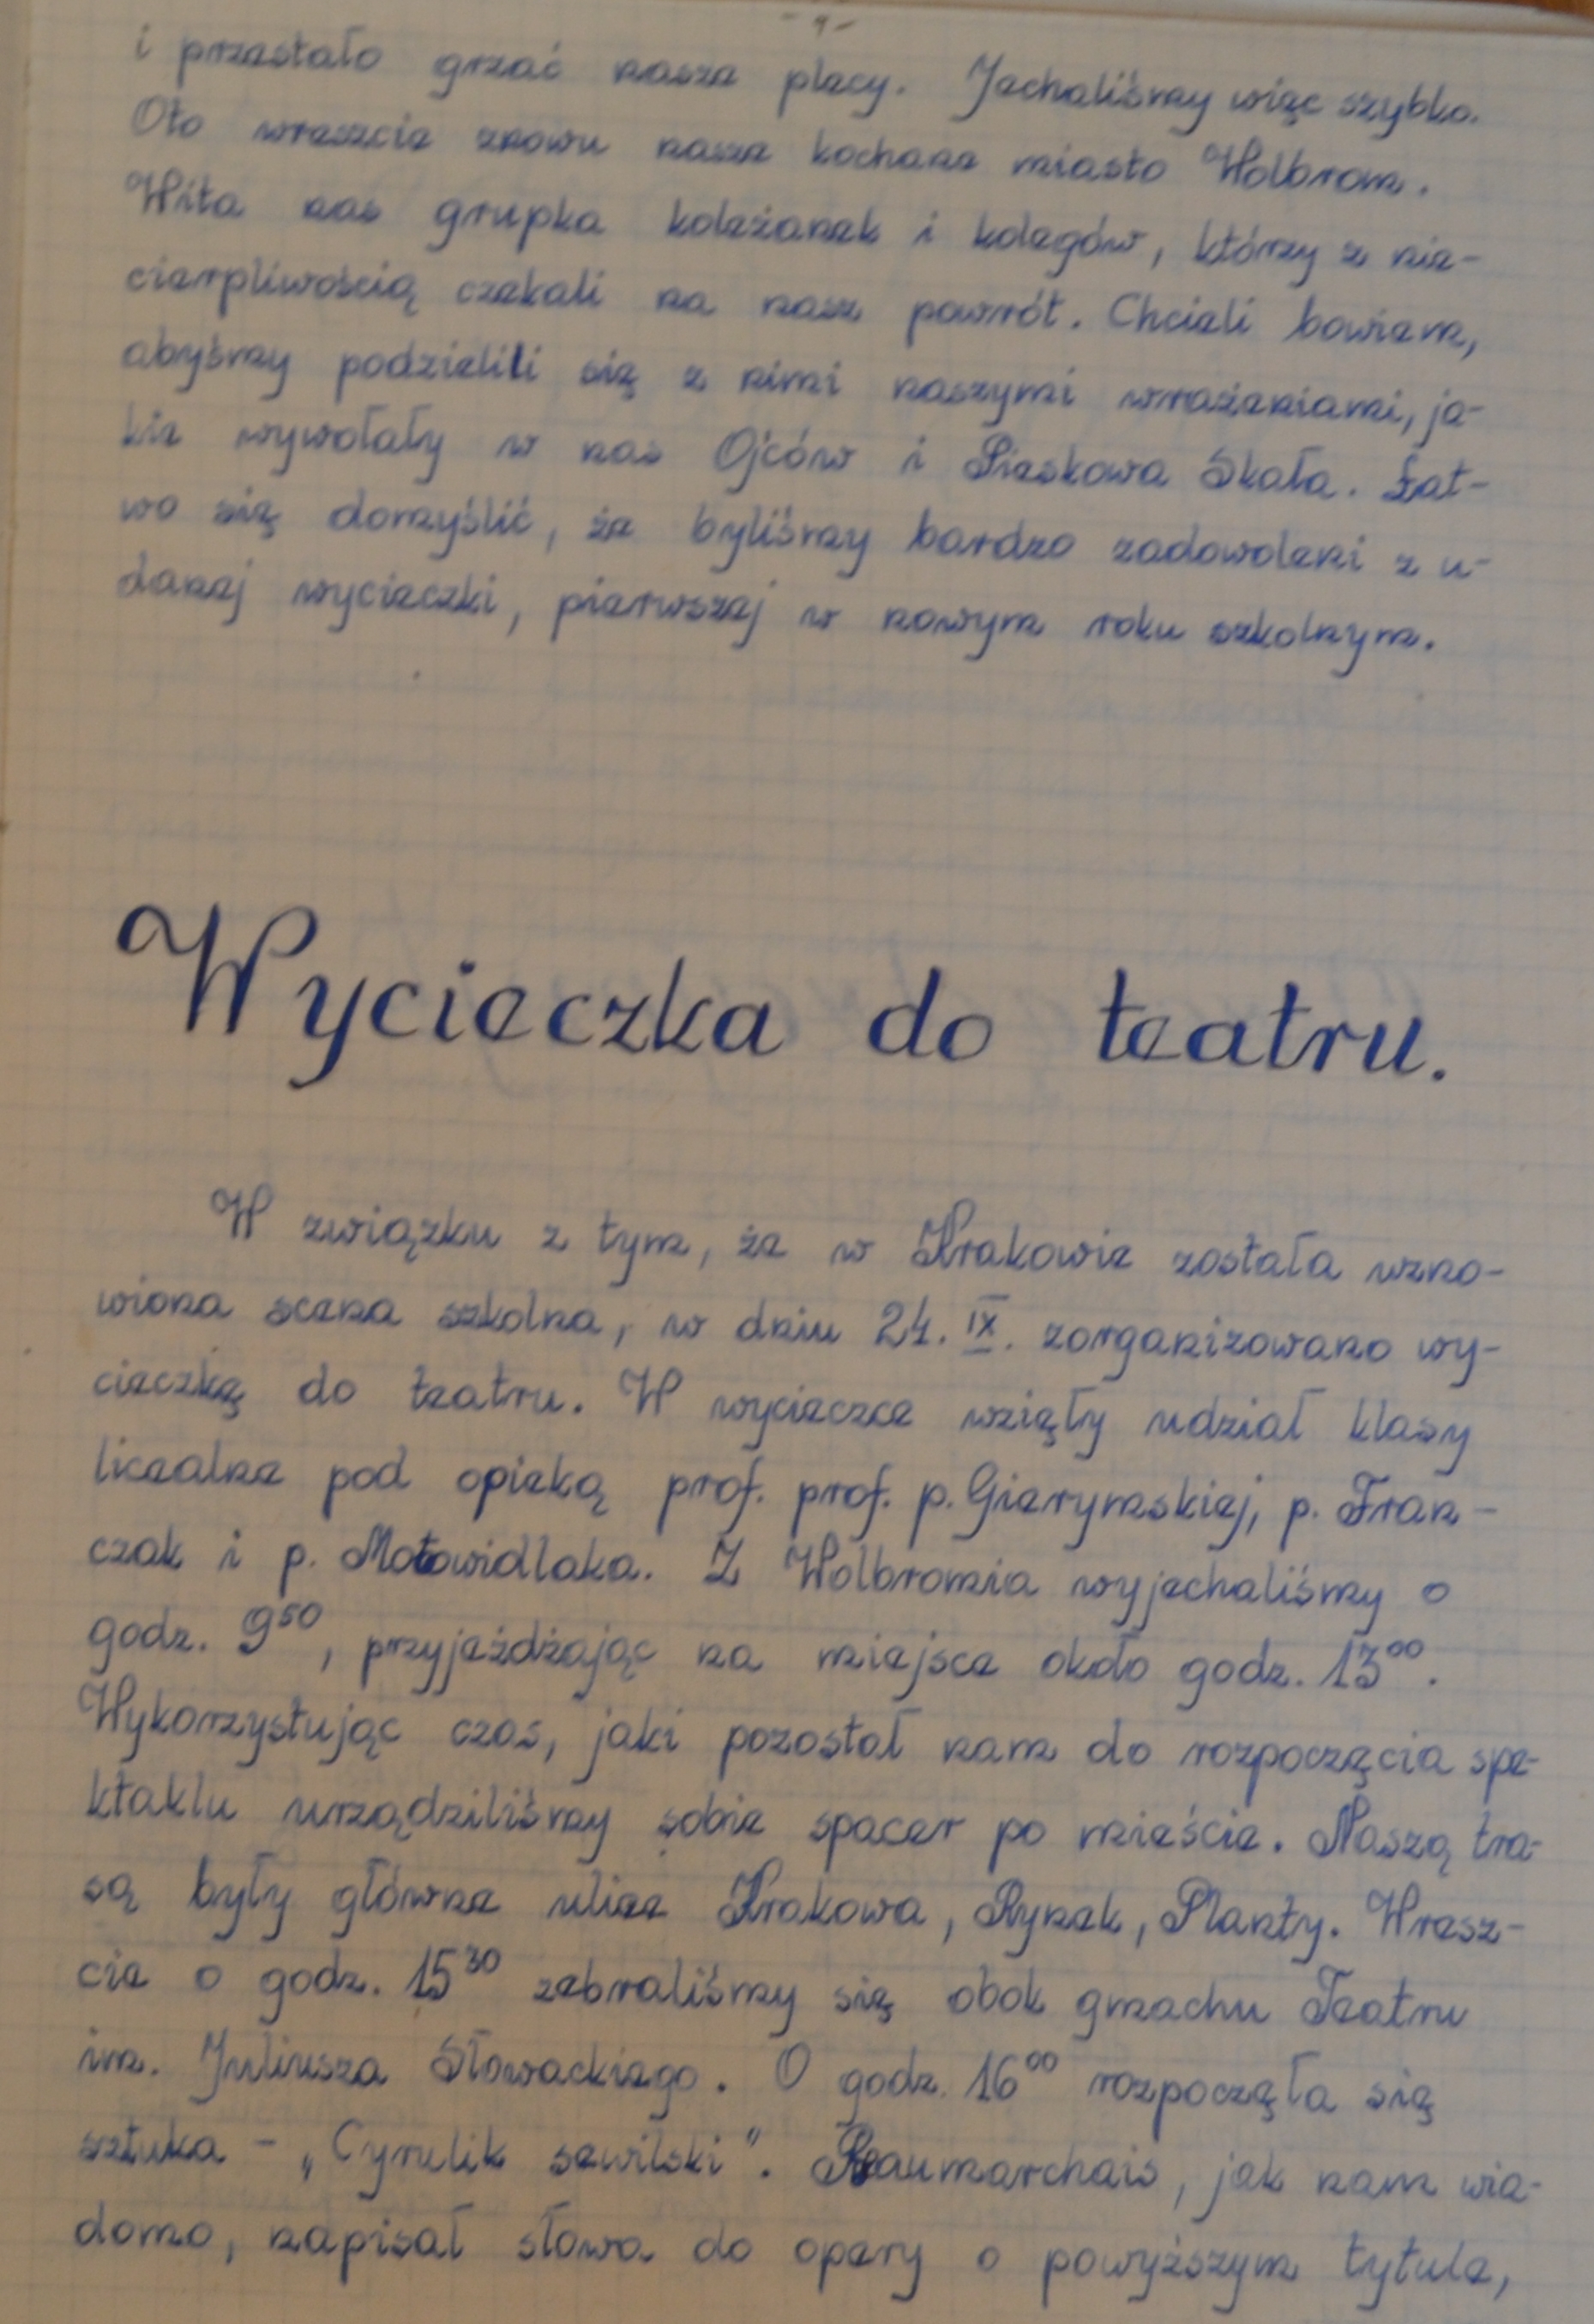 - 9 -
i przestało grzać nasze plecy. Jechaliśmy więc szybko.
Oto wreszcie znowu nasze kochane miasto Wolbrom.
Wita nas grupka koleżanek i kolegów, którzy z nie-
cierpliwością czekali na nasz powrót. Chcieli bowiem,
abyśmy podzielili się z nimi naszymi wrażeniami, ja-
kie wywołały w nas Ojców i Pieskowa Skała. Łat-
wo się domyślić, że byliśmy bardzo zadowoleni z u-
danej wycieczki, pierwszej w nowym roku szkolnym.
Wycieczka do teatru.
W związku z tym, że w Krakowie została wzno-
wiona scena szkolna, w dniu 24. IX. zorganizowano wy-
cieczkę do teatru. W wycieczce wzięły udział klasy
licealne pod opieką prof. prof. p. Gierymskiej, p. Fran-
czak i p. Motowidlaka. Z Wolbromia wyjechaliśmy o
godz. 9⁵⁰, przyjeżdżając na miejsce około godz. 13⁰⁰.
Wykorzystując czas, jaki pozostał nam do rozpoczęcia spe-
ktaklu urządziliśmy sobie spacer po mieście. Naszą tra-
są były główne ulice Krakowa, Rynek, Planty. Wresz-
cie o godz. 15³⁰ zebraliśmy się obok gmachu Teatru
im. Juliusza Słowackiego. O godz. 16⁰⁰ rozpoczęła się
sztuka - „Cyrulik sewilski". Beaumarchais, jak nam wia-
domo, napisał słowa do opery o powyższym tytule,